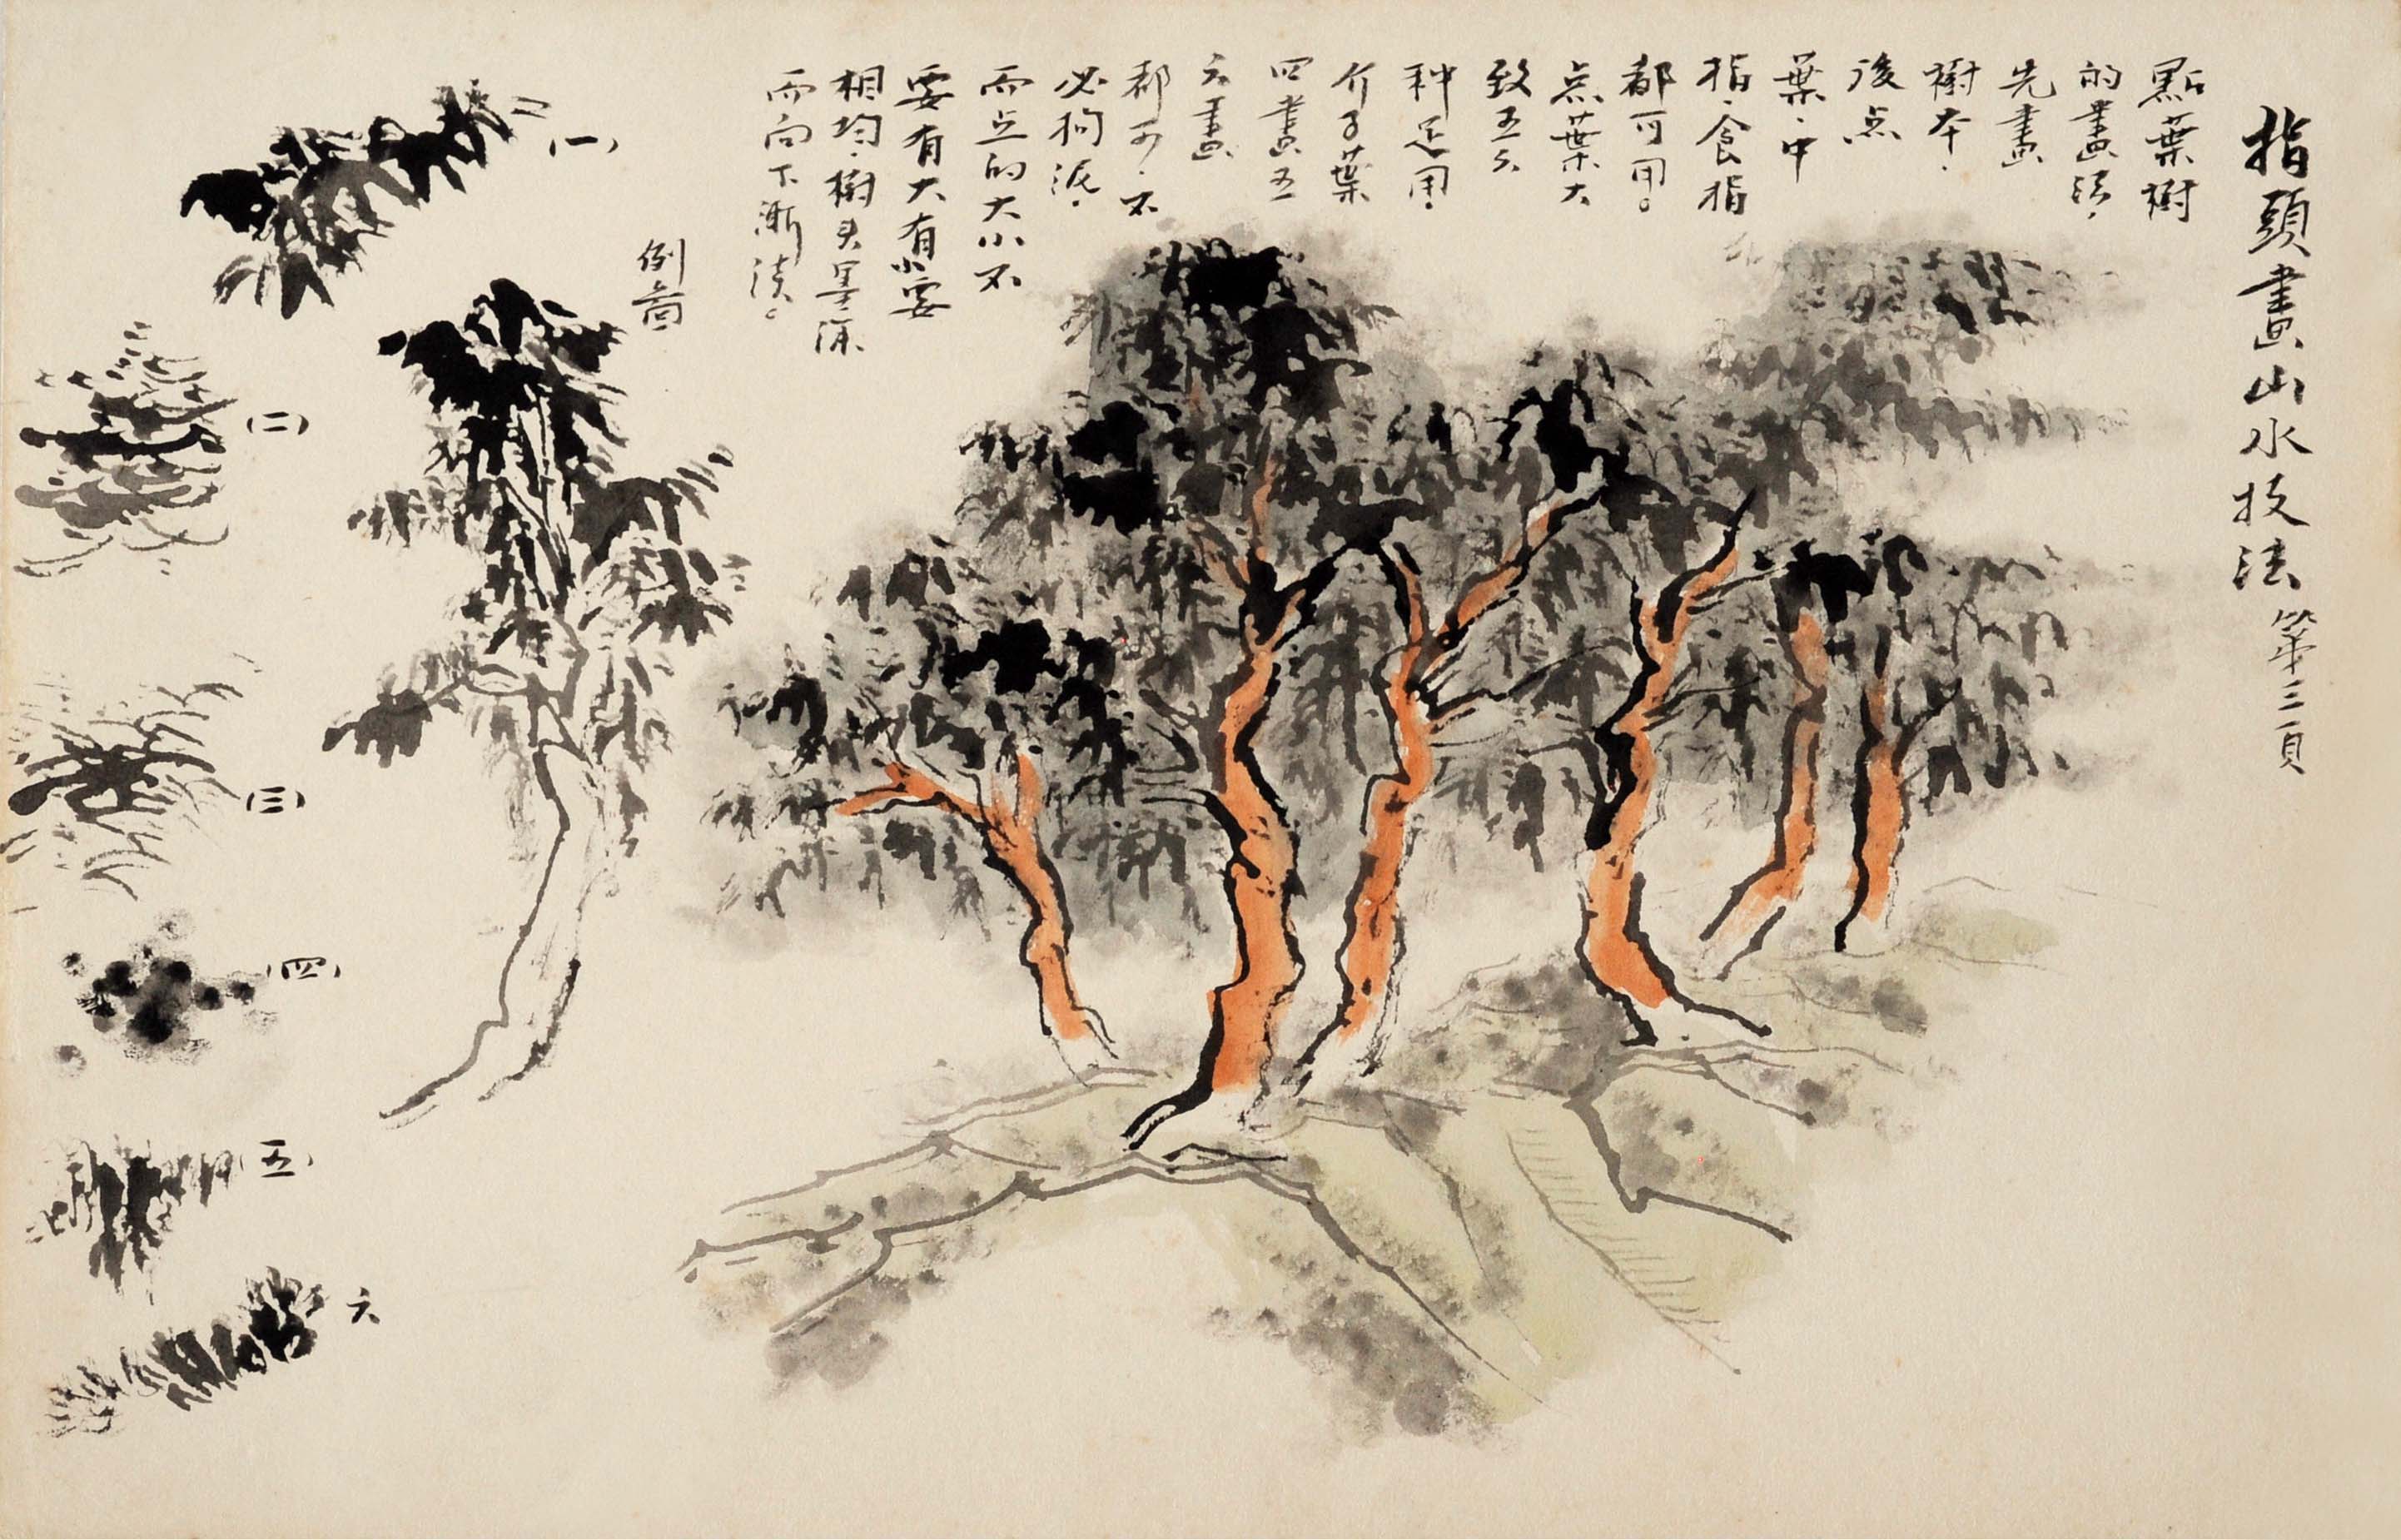 指頭畫山水技法 第三頁
點葉樹
的畫法，
先畫
樹本，
後点
葉，中
指，食指
都可用。
点葉大
致五六
种足用，
介子葉
四畫五
六畫
都可，不
必拘泥，
而点的大小不
要有大有小要
相均，樹头墨深
而向下漸淡。
例啚
(一)
(二)
(三)
(四)
(五)
六